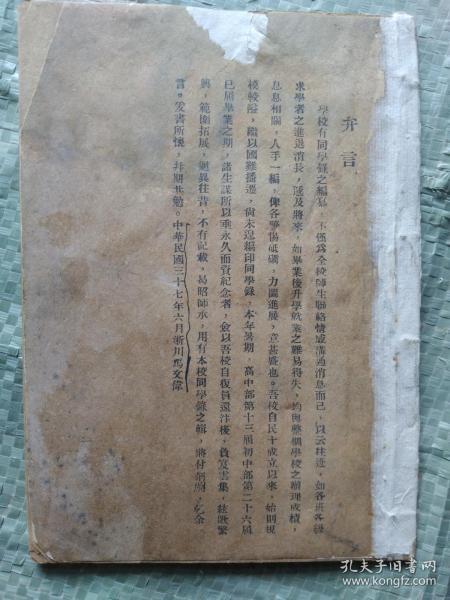 弁言
學校有同學錄之編纂，不僅爲全校師生聯絡情感溝通消息而已，以云往迹，如各班各級
求學者之進退消長，遞及將來，如畢業後升學就業之難易得失，均與整個學校之辦理成績，
息息相關，人手一編，俾各警惕砥礪，力圖進展，意甚盛也。吾校自民十成立以來，始則規
模較隘，繼以國難播遷，尙未遑編印同學錄，本年暑期，高中部第十三屆初中部第二十六屆
已屆畢業之期，諸生謀所以垂永久而資紀念者，僉以吾校自復員還汴後，負笈雲集，絃歌繁
興，範圍拓展，迥異往昔，不有記載，曷昭師承，用有本校同學錄之輯，將付剞劂，乞余
言。爰書所懷，幷期共勉。中華民國三十七年六月淅川馬文偉
孔夫子旧书网
www.kongfz.com